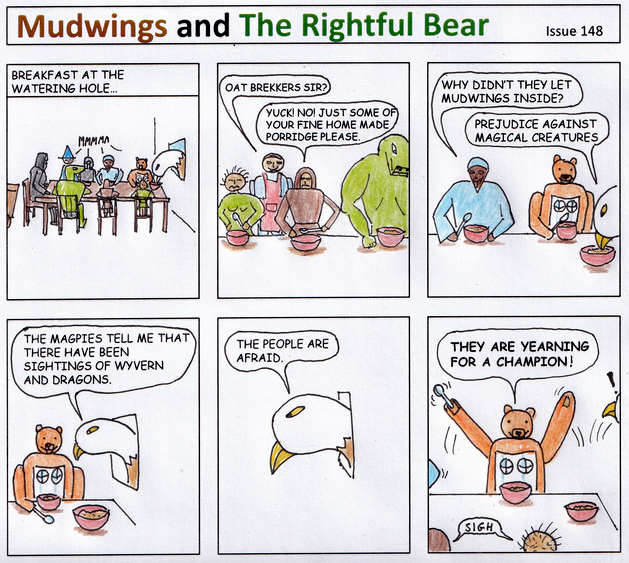 Mudwings and The Rightful Bear
Issue 148
BREAKFAST AT THE
WATERING HOLE...
MMMMM
OAT BREKKERS SIR?
YUCK! NO! JUST SOME OF
YOUR FINE HOME MADE
PORRIDGE PLEASE.
WHY DIDN'T THEY LET
MUDWINGS INSIDE?
PREJUDICE AGAINST
MAGICAL CREATURES
THE MAGPIES TELL ME THAT
THERE HAVE BEEN
SIGHTINGS OF WYVERN
AND DRAGONS.
THE PEOPLE ARE
AFRAID.
THEY ARE YEARNING
FOR A CHAMPION!
!
SIGH